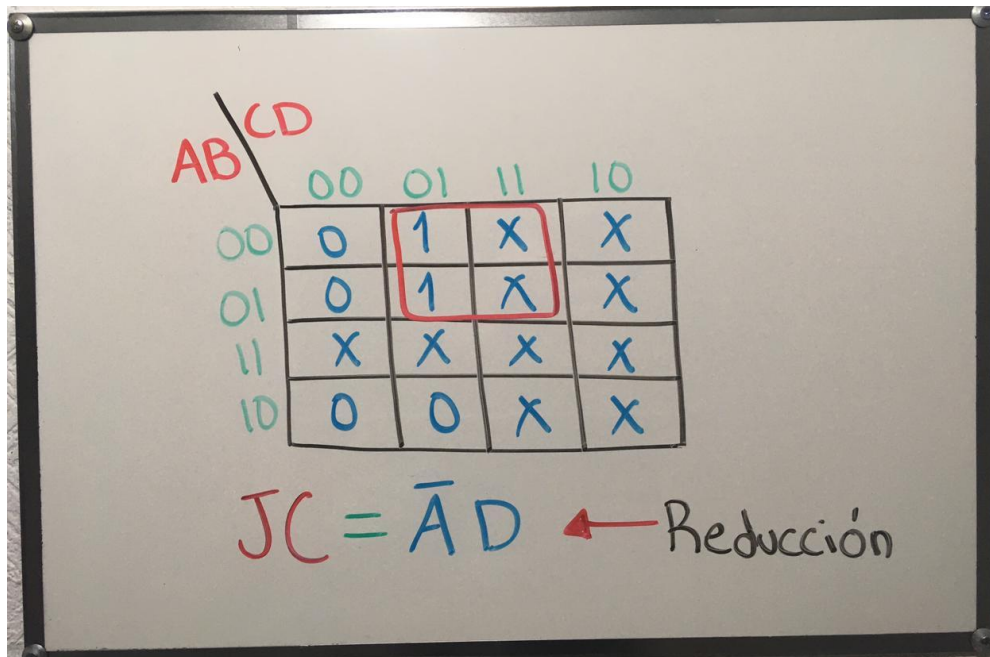 CD
AB
00 01 11 10
00 0 1 X X
01 0 1 X X
11 X X X X
10 0 0 X X
JC = A̅ D ← Reducción